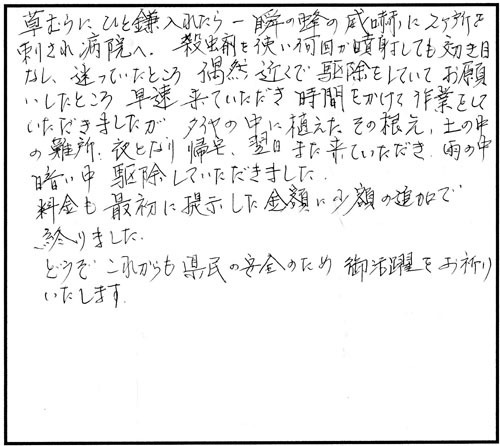 草むらに ひと鎌入れたら 一瞬の蜂の威嚇に 2ヶ所を
刺され 病院へ. 殺虫剤を使い何回か噴射しても効き目
なし、迷っていたところ 偶然 近くで 駆除をしていて お願
いしたところ 早速 来ていただき 時間をかけて 作業をして
いただきましたが タイヤの中に植えた その根元, 土の中
の難所. 夜となり 帰宅、翌日 また来ていただき. 雨の中
暗い中 駆除していただきました.
料金も 最初に提示した金額に少額の追加で
終りました.
どうぞ これからも 県民の安全のため 御活躍をお祈り
いたします.